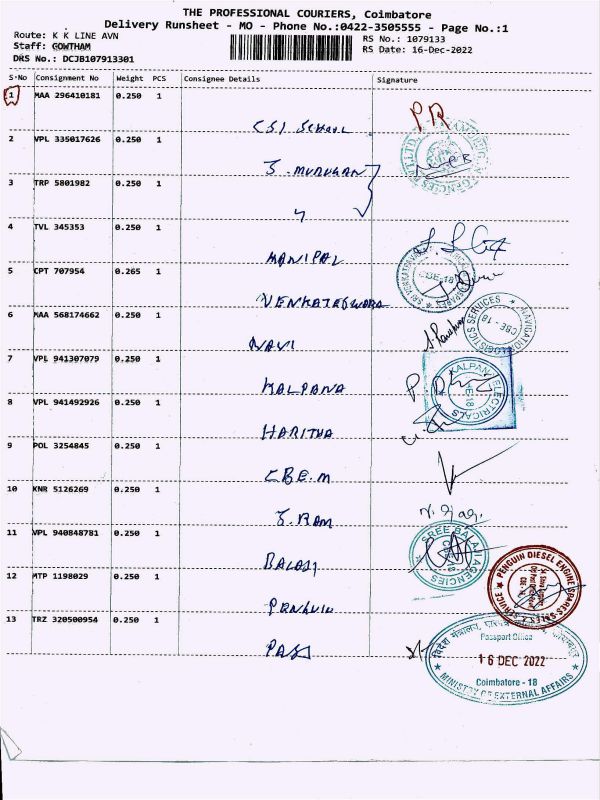 THE PROFESSIONAL COURIERS, Coimbatore
Delivery Runsheet - MO - Phone No.:0422-3505555 - Page No.:1
Route: K K LINE AVN
RS No.: 1079133
Staff: GOWTHAM
RS Date: 16-Dec-2022
DRS No.: DCJB107913301
S.No Consignment No Weight PCS Consignee Details Signature
1 MAA 296410181 0.250 1
CSI SCHOOL PR
2 VPL 335017626 0.250 1
S. MURUGAN
3 TRP 5801982 0.250 1
4 TVL 345353 0.250 1
MANIPAL
5 CPT 707954 0.265 1
CBE-18
VENKATESWARA
6 MAA 568174662 0.250 1
NAVIGATION LOGISTICS SERVICES
CBE - 18
NAVI
7 VPL 941307079 0.250 1
KALPANA
KALPANA ELECTRICALS
8 VPL 941492926 0.250 1
HARITHA
9 POL 3254845 0.250 1
CBE.M
10 KNR 5126269 0.250 1
S. RAM
11 VPL 940848781 0.250 1
SREE BALAJI AGENCIES
BALAJI
12 MTP 1198029 0.250 1
PENGUIN DIESEL ENGINE SPARES SALES & SERVICE
PENGUIN
13 TRZ 320500954 0.250 1
PASS
Passport Office
16 DEC 2022
Coimbatore - 18
MINISTRY OF EXTERNAL AFFAIRS